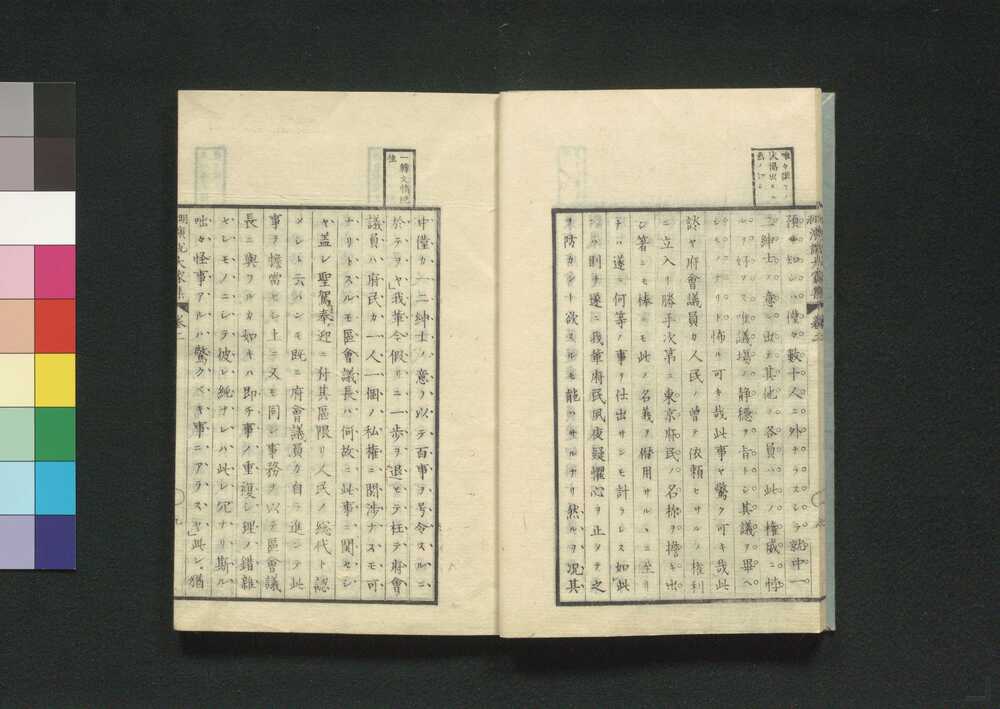 預リ知ルハ僅々數十人ニ外ナラス シテ就中一
二紳士ノ意ニ出テ其他ノ各員ハ此ノ權威ニ憚
シヲ好マス唯議場ノ靜穩ヲ旨トシ其議ヲ畢ヘ
シモノナリト怖ル可キ哉此事ヤ驚ク可キ哉此
談ヤ府會議員カ人民ノ曾テ依頼セサルノ權利
ニ立入リ勝手次第ニ東京府民ノ名称ヲ擔キ出
シ箸ニモ棒ニモ此ノ名義ヲ借用サルヽニ至リ
テハ遂ニ何等ノ事ヲ仕出サンモ計ラレス如此
則チ遂ニ我輩府民夙夜疑懼心ヲ止メテ之
ヲ防カント欲スルモ能ハサルナリ然ルヲ況其
一轉文情
中僅カ一二紳士ノ意ヲ以テ百事ヲ号令スルニ
於テヲヤ」我輩今假リニ一歩ヲ退モテ枉テ府會
議員ハ府民カ一人一個ノ私權ニ關渉ナスモ可
ナリトスルモ區會議長ハ何故ニ此事ニ関セシ
ヤ蓋シ聖駕奉迎ニ付其區限リ人民ノ総代ト認
メシト云ハンモ既ニ府會議員カ自ラ進ンテ此
事ヲ擔當セシ上ニ又モ同シ事務ヲ以テ區會議
長ニ與フルカ如キハ即チ事ノ重複シ理ノ錯雜
セシモノニシテ彼レ純ナレハ此レ冗ナリ斯ル
咄々怪事アルハ驚クヘキ事ニアラスヤ」此レ猶